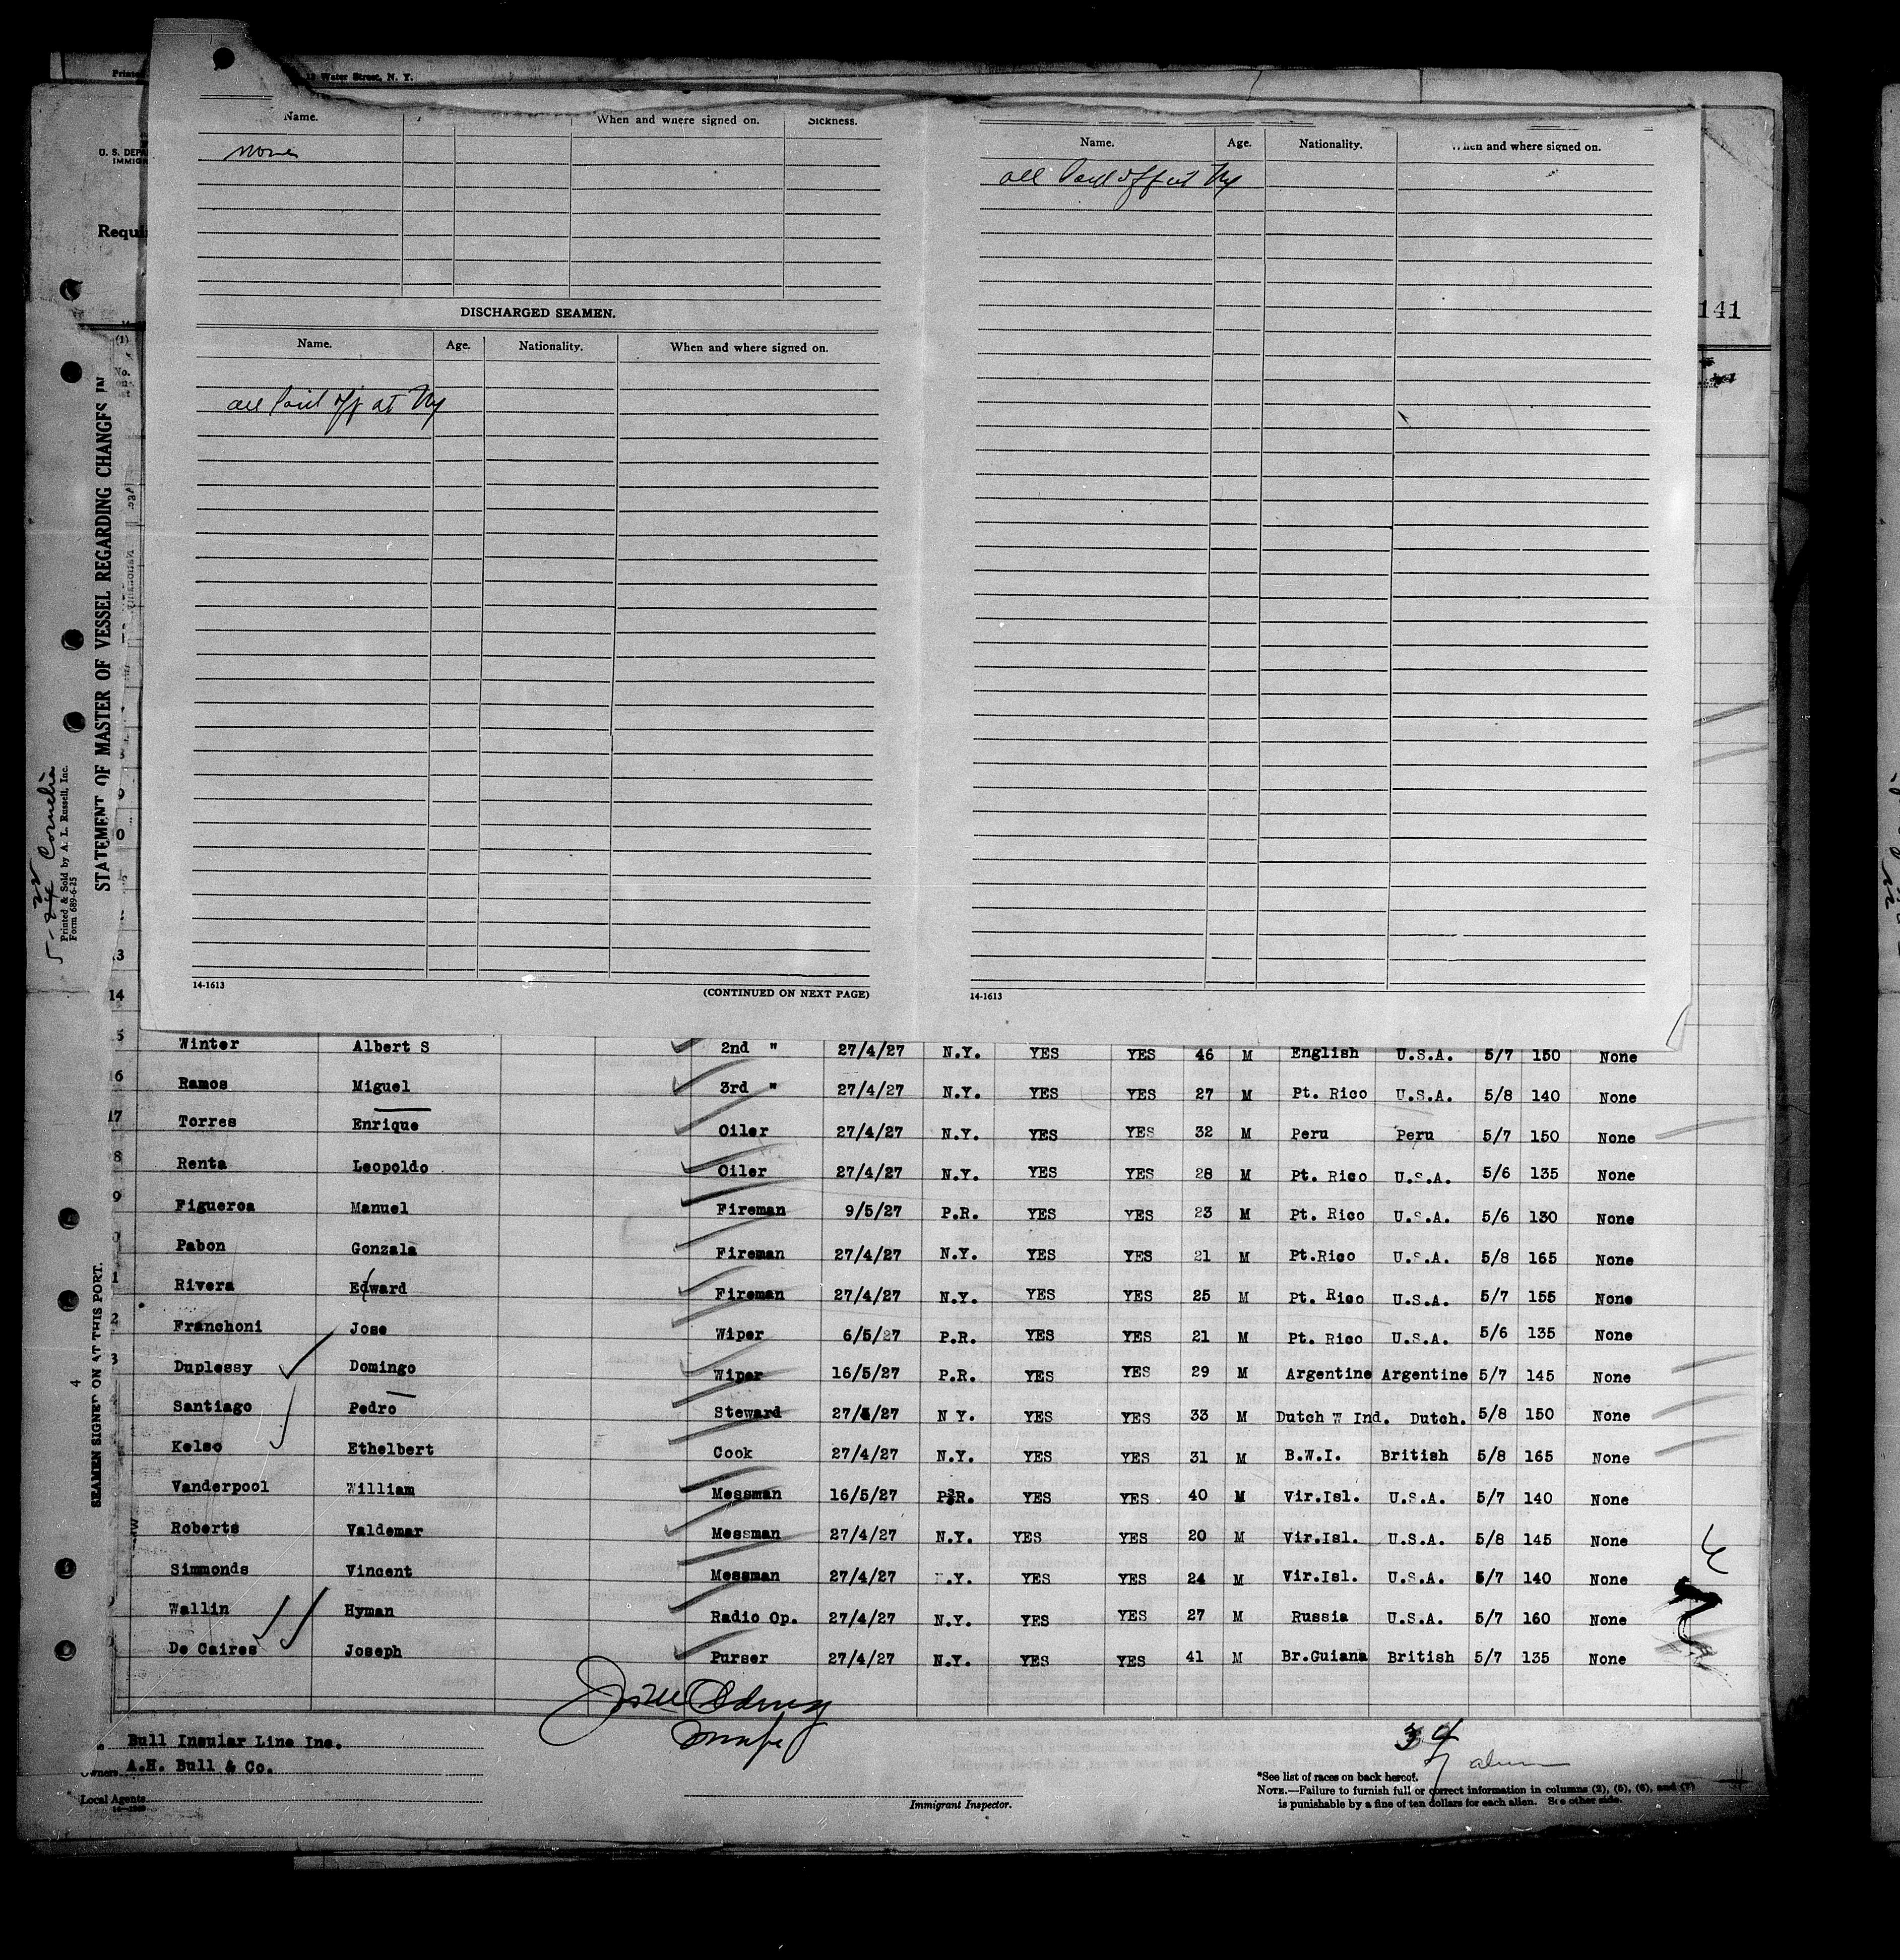 12 Water Street, N. Y.
U. S. DEPA
IMMIG
Requi
141
Name. When and where signed on. Sickness.
none
DISCHARGED SEAMEN.
Name. Age. Nationality. When and where signed on.
all Paid off at Ny
14-1613 (CONTINUED ON NEXT PAGE)
Name. Age. Nationality. When and where signed on.
all Paid off at Ny
14-1613
STATEMENT OF MASTER OF VESSEL REGARDING CHANGES IN
Cornelia
Printed & Sold by A. L. Russell, Inc.
Form 689-6-25
SEAMEN SIGNED ON AT THIS PORT.
4
13
14
5 Winter Albert S 2nd " 27/4/27 N.Y. YES YES 46 M English U.S.A. 5/7 150 None
6 Ramos Miguel 3rd " 27/4/27 N.Y. YES YES 27 M Pt. Rico U.S.A. 5/8 140 None
17 Torres Enrique Oiler 27/4/27 N.Y. YES YES 32 M Peru Peru 5/7 150 None
8 Renta Leopoldo Oiler 27/4/27 N.Y. YES YES 28 M Pt. Rico U.S.A. 5/6 135 None
9 Figueroa Manuel Fireman 9/5/27 P.R. YES YES 23 M Pt. Rico U.S.A. 5/6 130 None
Pabon Gonzala Fireman 27/4/27 N.Y. YES YES 21 M Pt.Rico U.S.A. 5/8 165 None
1 Rivera Edward Fireman 27/4/27 N.Y. YES YES 25 M Pt. Rico U.S.A. 5/7 155 None
2 Franchoni Jose Wiper 6/5/27 P.R. YES YES 21 M Pt. Rico U.S.A. 5/6 135 None
3 Duplessy Domingo Wiper 16/5/27 P.R. YES YES 29 M Argentine Argentine 5/7 145 None
Santiago Pedro Steward 27/4/27 N Y. YES YES 33 M Dutch W Ind. Dutch. 5/8 150 None
Kelso Ethelbert Cook 27/4/27 N.Y. YES YES 31 M B.W.I. British 5/8 165 None
Vanderpool William Messman 16/5/27 P.R. YES YES 40 M Vir.Isl. U.S.A. 5/7 140 None
Roberts Valdemar Messman 27/4/27 N.Y. YES YES 20 M Vir.Isl. U.S.A. 5/8 145 None
Simmonds Vincent Messman 27/4/27 N.Y. YES YES 24 M Vir.Isl. U.S.A. 5/7 140 None
Wallin Hyman Radio Op. 27/4/27 N.Y. YES YES 27 M Russia U.S.A. 5/7 160 None
De Caires Joseph Purser 27/4/27 N.Y. YES YES 41 M Br.Guiana British 5/7 135 None
Bull Insular Line Inc.
Owners A.H. Bull & Co.
Local Agents
34
Immigrant Inspector.
*See list of races on back hereof.
NOTE.—Failure to furnish full or correct information in columns (2), (5), (6), and (7)
is punishable by a fine of ten dollars for each alien. See other side.